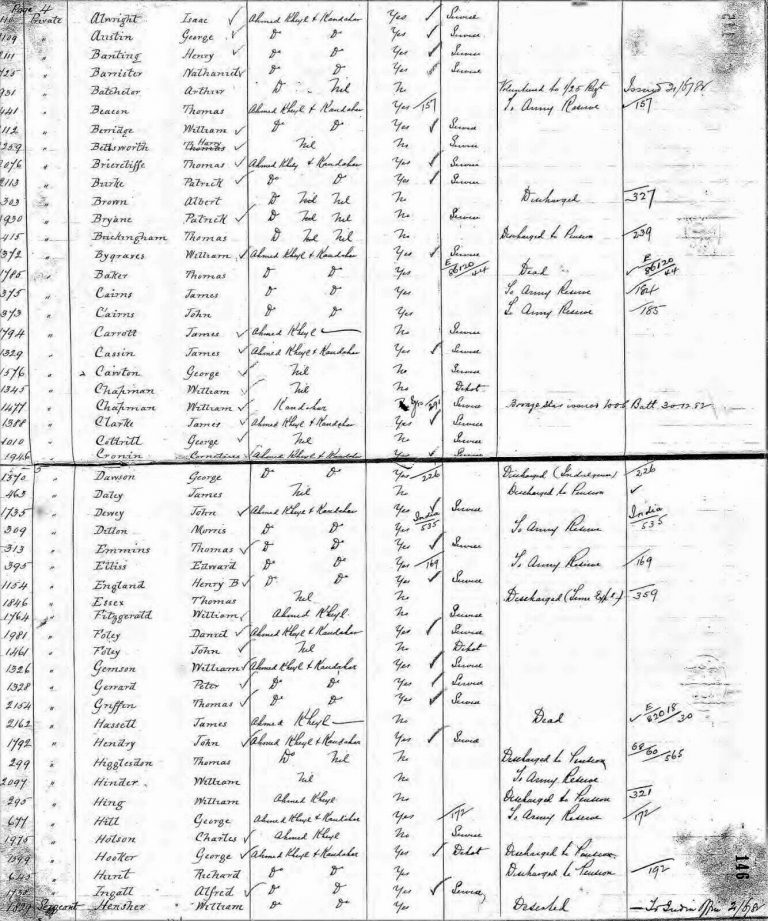 Page 4
Private Alwright Isaac ✓ Ahmed Kheyl & Kandahar Yes ✓ Service
2109 " Austin George ✓ D° D° Yes ✓ Service
2111 " Banting Henry ✓ D° D° Yes ✓ Service
725 " Barrister Nathaniel ✓ D° D° Yes Service
931 " Batchelor Arthur D° Nil No Volunteered to 1/25 Regt Issued
441 " Beacon Thomas Ahmed Kheyl & Kandahar Yes 157 To Army Reserve 157
2112 " Berridge William ✓ D° D° Yes ✓ Service
2259 " Harry ✓ Nil No Service
2076 " Briercliffe Thomas ✓ Ahmed Kheyl & Kandahar Yes ✓ Service
2113 " Burke Patrick ✓ D° D° Yes ✓ Service
303 " Brown Albert D° Nil No Discharged 327
1930 " Bryane Patrick ✓ D° Nil No Service
415 " Buckingham Thomas D° Nil No Discharged to Pension 239
1372 " Bygraves William ✓ Ahmed Kheyl & Kandahar Yes ✓ Service
1785 " Baker Thomas D° D° Yes E 86120/44 Dead ✓ E 86120/44
375 " Cairns James D° D° Yes To Army Reserve 164
373 " Cairns John D° D° Yes To Army Reserve 185
1794 " Carrott James ✓ Ahmed Kheyl — No Service
1329 " Cassin James ✓ Ahmed Kheyl & Kandahar Yes ✓ Service
1576 " Cawton George ✓ Nil No Service
1345 " Chapman William ✓ Nil No Depot
1477 " Chapman William ✓ Kandahar Yes Service Batt. 30.12.82
1388 " Clarke James ✓ Ahmed Kheyl & Kandahar Yes ✓ Service
1010 " Cottrill George ✓ Nil No Service
1946 " Cronin Cornelius ✓ Ahmed Kheyl & Kandahar Yes ✓ Service
1370 " Dawson George D° D° Yes 226 Discharged 226
463 " Daley James Nil No Discharged to Pension ✓
1735 " Dewey John ✓ Ahmed Kheyl & Kandahar Yes ✓ Service
309 " Dillon Morris D° D° Yes India 535 To Army Reserve India 535
313 " Emmins Thomas ✓ D° D° Yes ✓ Service
395 " Elliss Edward D° D° Yes 169 To Army Reserve 169
1154 " England Henry B ✓ D° D° Yes ✓ Service
1846 " Essex Thomas Nil No Discharged (Time Exp.) 359
1764 " Fitzgerald William ✓ Ahmed Kheyl No Service
1981 " Foley Daniel ✓ Ahmed Kheyl & Kandahar Yes ✓ Service
1461 " Foley John ✓ Nil No Depot
1326 " Gemson William ✓ Ahmed Kheyl & Kandahar Yes ✓ Service
1328 " Gerrard Peter ✓ D° D° Yes ✓ Service
2154 " Griffen Thomas ✓ D° D° Yes ✓ Service
2162 " Hassett James Ahmed Kheyl — No Dead ✓ E 82018/30
1792 " Hendry John ✓ Ahmed Kheyl & Kandahar Yes ✓ Service
299 " Higgleston Thomas D° Nil No Discharged to Pension 68/60/565
2097 " Hinder William Nil No To Army Reserve
295 " Hing William Ahmed Kheyl No Discharged to Pension 321
677 " Hill George Ahmed Kheyl & Kandahar Yes 172 To Army Reserve 172
1975 " Holson Charles ✓ Ahmed Kheyl No Service
1599 " Hooker George ✓ Ahmed Kheyl & Kandahar Yes ✓ Depot Discharged to Pension
645 " Hunt Richard D° D° Yes Discharged to Pension 192
" Ingall Alfred ✓ D° D° Yes ✓ Service
Sergeant Hensher William D° D° Yes Deserted
146